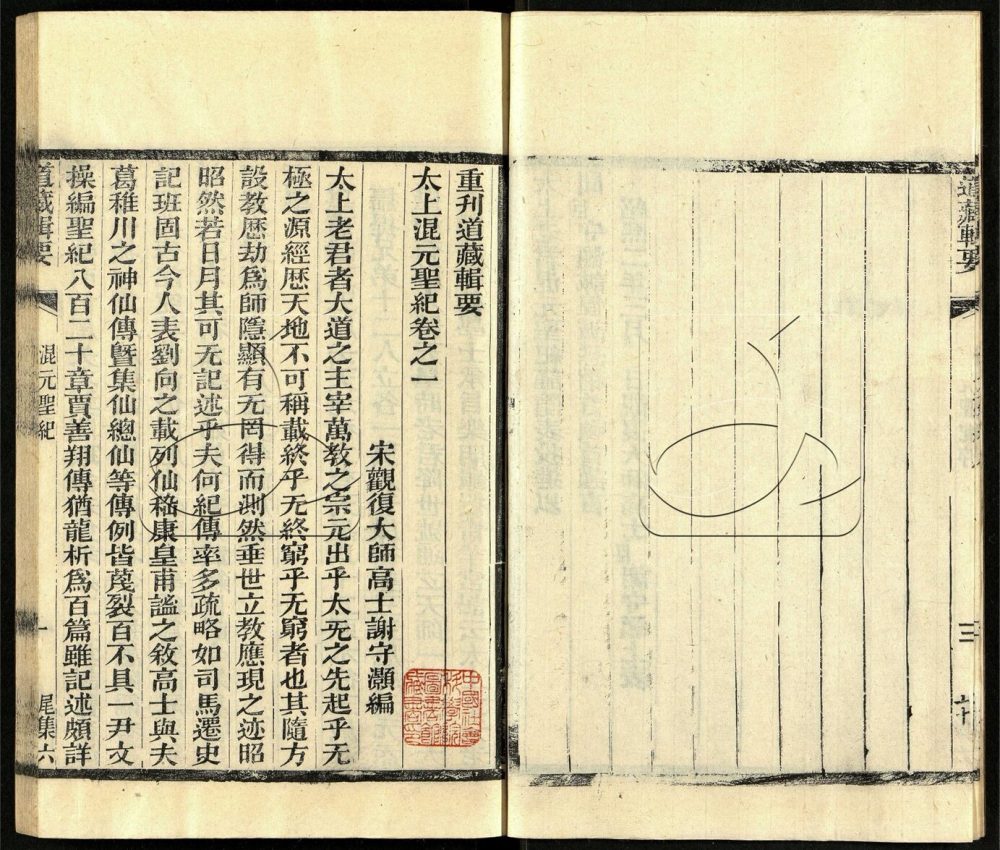 道藏輯要
三
重刊道藏輯要
太上混元聖紀卷之一
宋觀復大師高士謝守灝編
太上老君者大道之主宰萬教之宗元出乎太无之先起乎无
極之源經歷天地不可稱載終乎无終窮乎无窮者也其隨方
設教歷劫爲師隱顯有无罔得而測然垂世立教應現之迹昭
昭然若日月其可无記述乎夫何紀傳率多疏略如司馬遷史
記班固古今人表劉向之載列仙嵇康皇甫謐之敘高士與夫
葛稚川之神仙傳曁集仙總仙等傳例皆蔑裂百不具一尹文
操編聖紀八百二十章賈善翔傳猶龍析爲百篇雖記述頗詳
道藏輯要
混元聖紀
一
尾集六